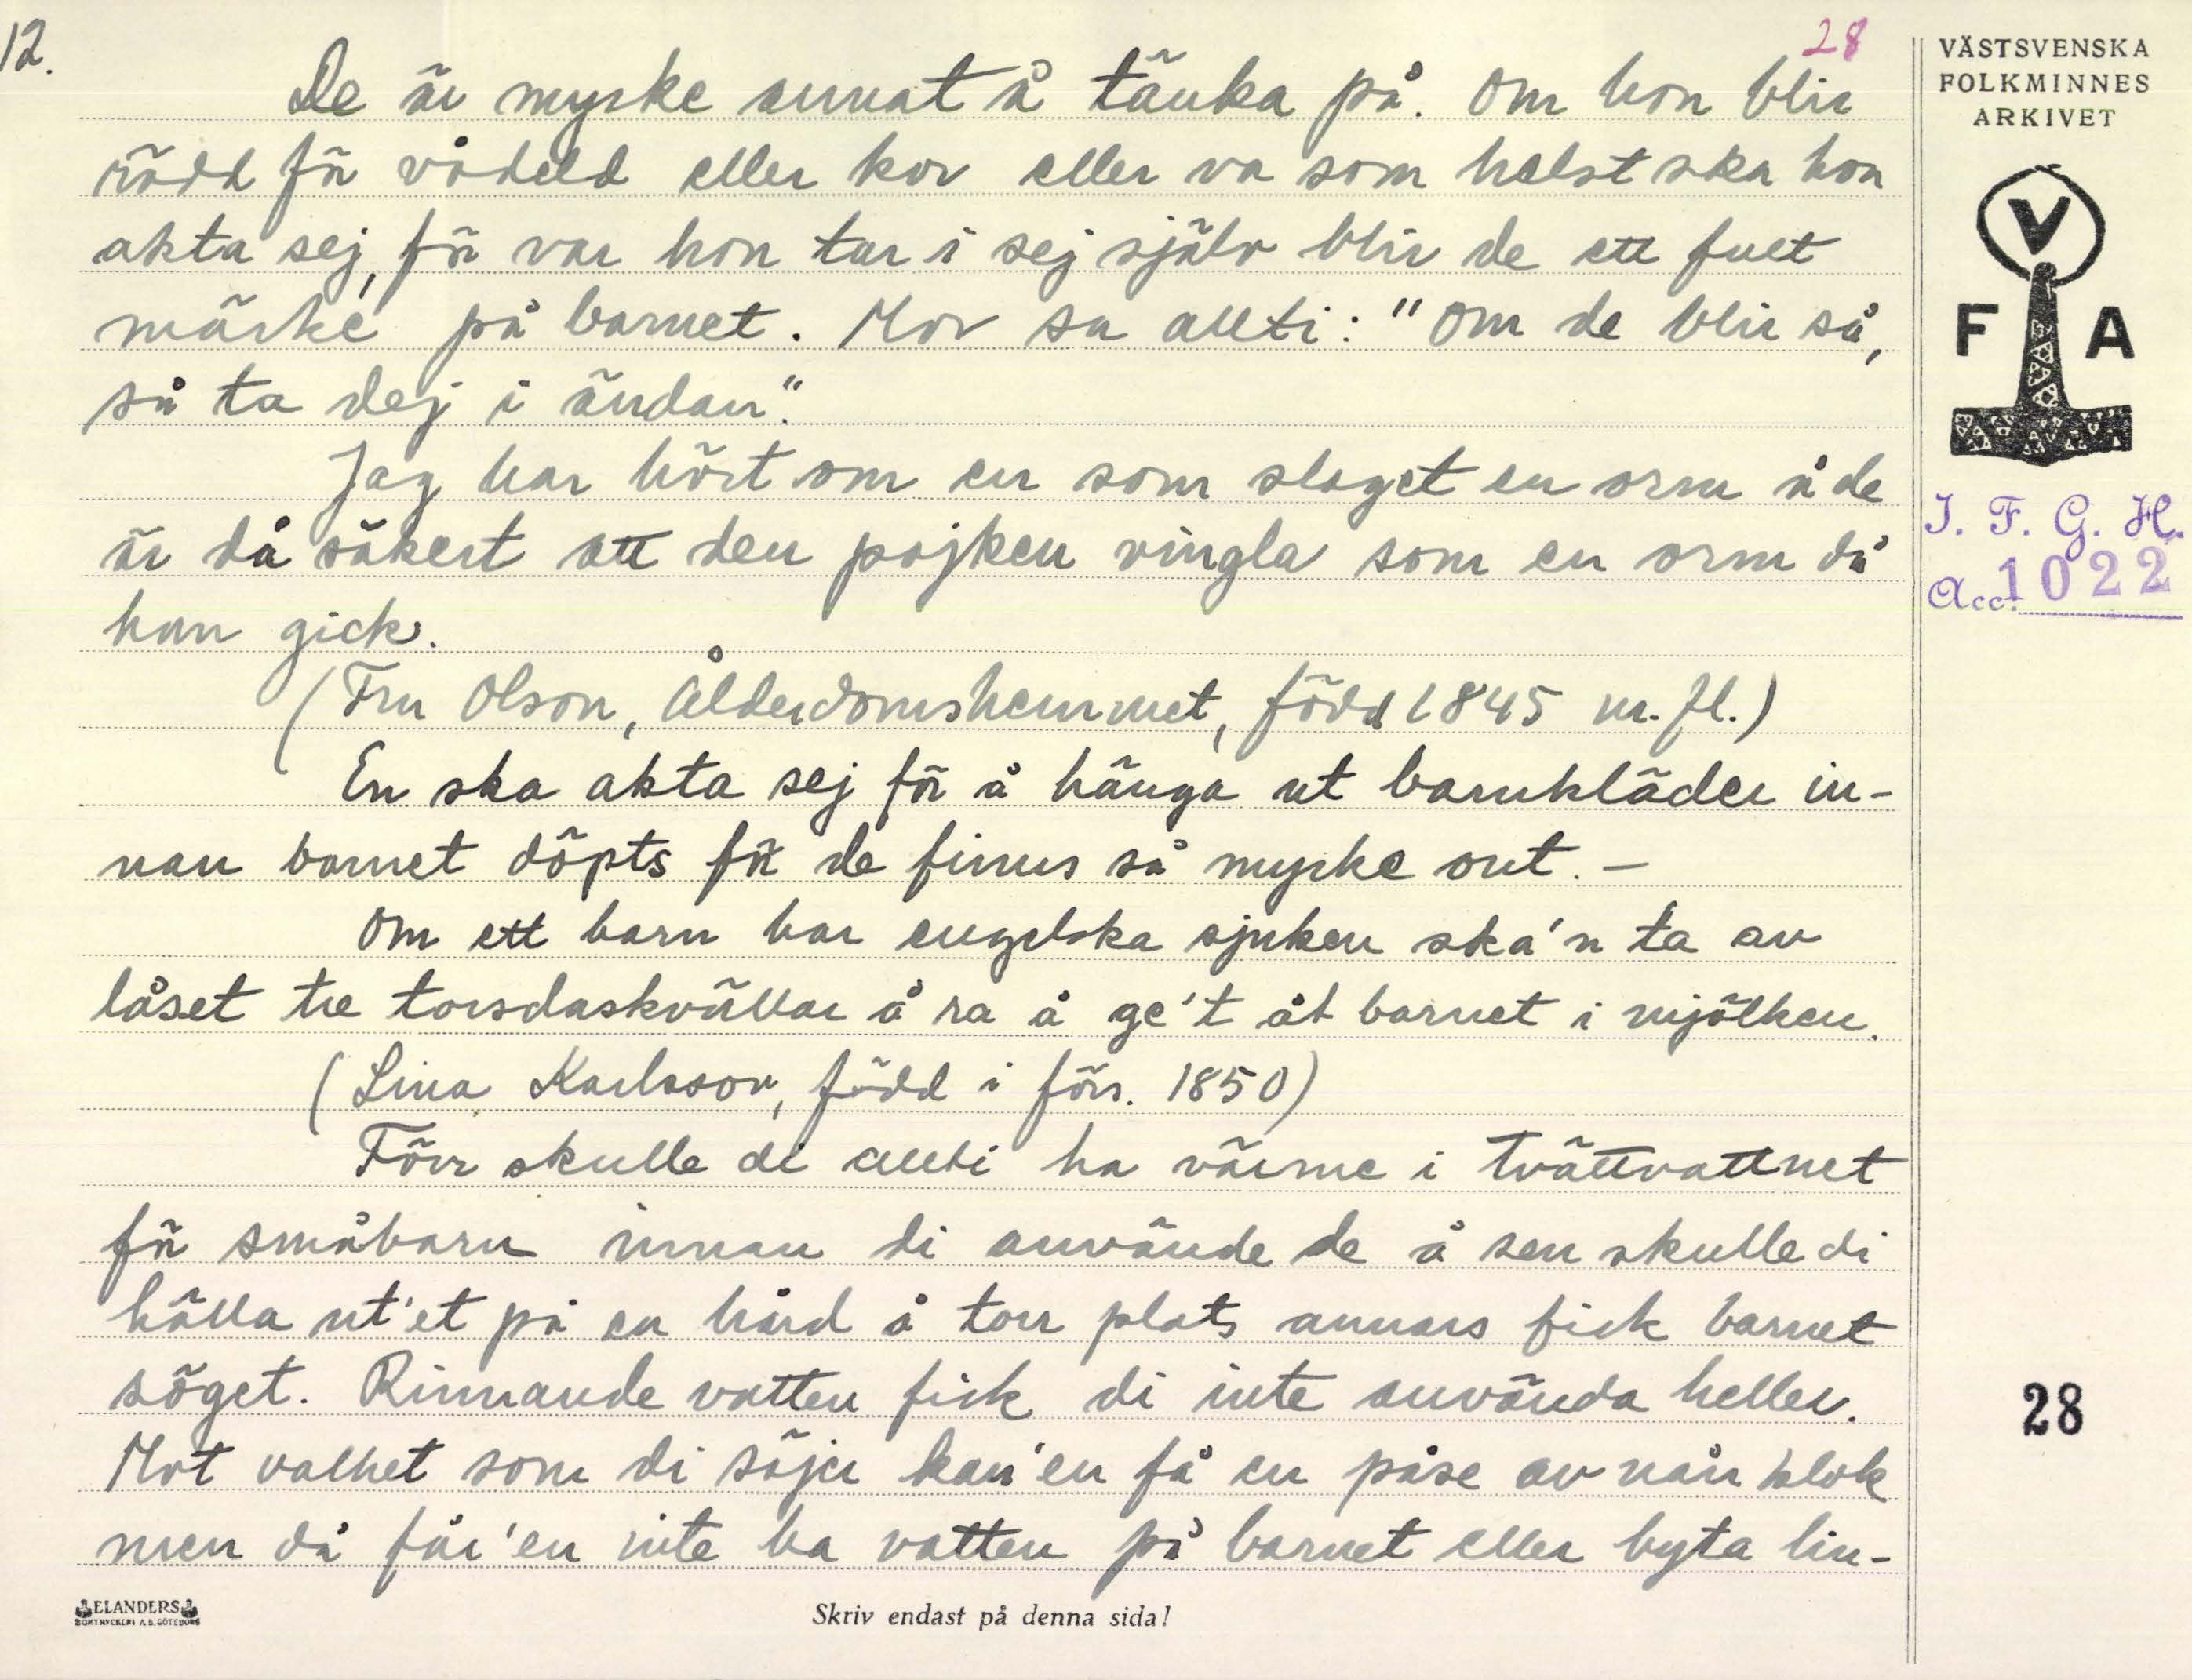 12.
28
De är myske annat å tänka på. Om hon blir
rädd för vådeld eller kor eller va som helst ska hon
akta sej, för var hon tar i sej själv blir de ett fult
märke på barnet. Mor sa allti: "Om de blir så,
så ta dej i ändan".
Jag har hört om en som slaget en orm å de
är då säkert att den pojken vingla som en orm då
han gick.
(Fru Olson, Ålderdomshemmet, född 1845 m. fl.)
En ska akta sej för å hänga ut barnkläder in-
nan barnet döpts för de finns så myske ont. -
Om ett barn har engelska sjuken ska'n ta av
låset tre torsdaskvällar å ra å ge't åt barnet i mjölken.
(Lina Karlsson, född i förs. 1850)
Förr skulle di allti ha värme i tvättvattnet
för småbarn innan di använde de å sen skulle di
hälla ut'et på en hård å torr plats annars fick barnet
söget. Rinnande vatten fick di inte använda heller.
Mot valhet som di säjer kan'en få en påse av nån klok
men då får'en inte ha vatten på barnet eller byta lin-
VÄSTSVENSKA
FOLKMINNES
ARKIVET
V
F A
I. F. G. H.
Acc. 1022
28
ELANDERS
BOKTRYCKERI A.B. GÖTEBORG
Skriv endast på denna sida!